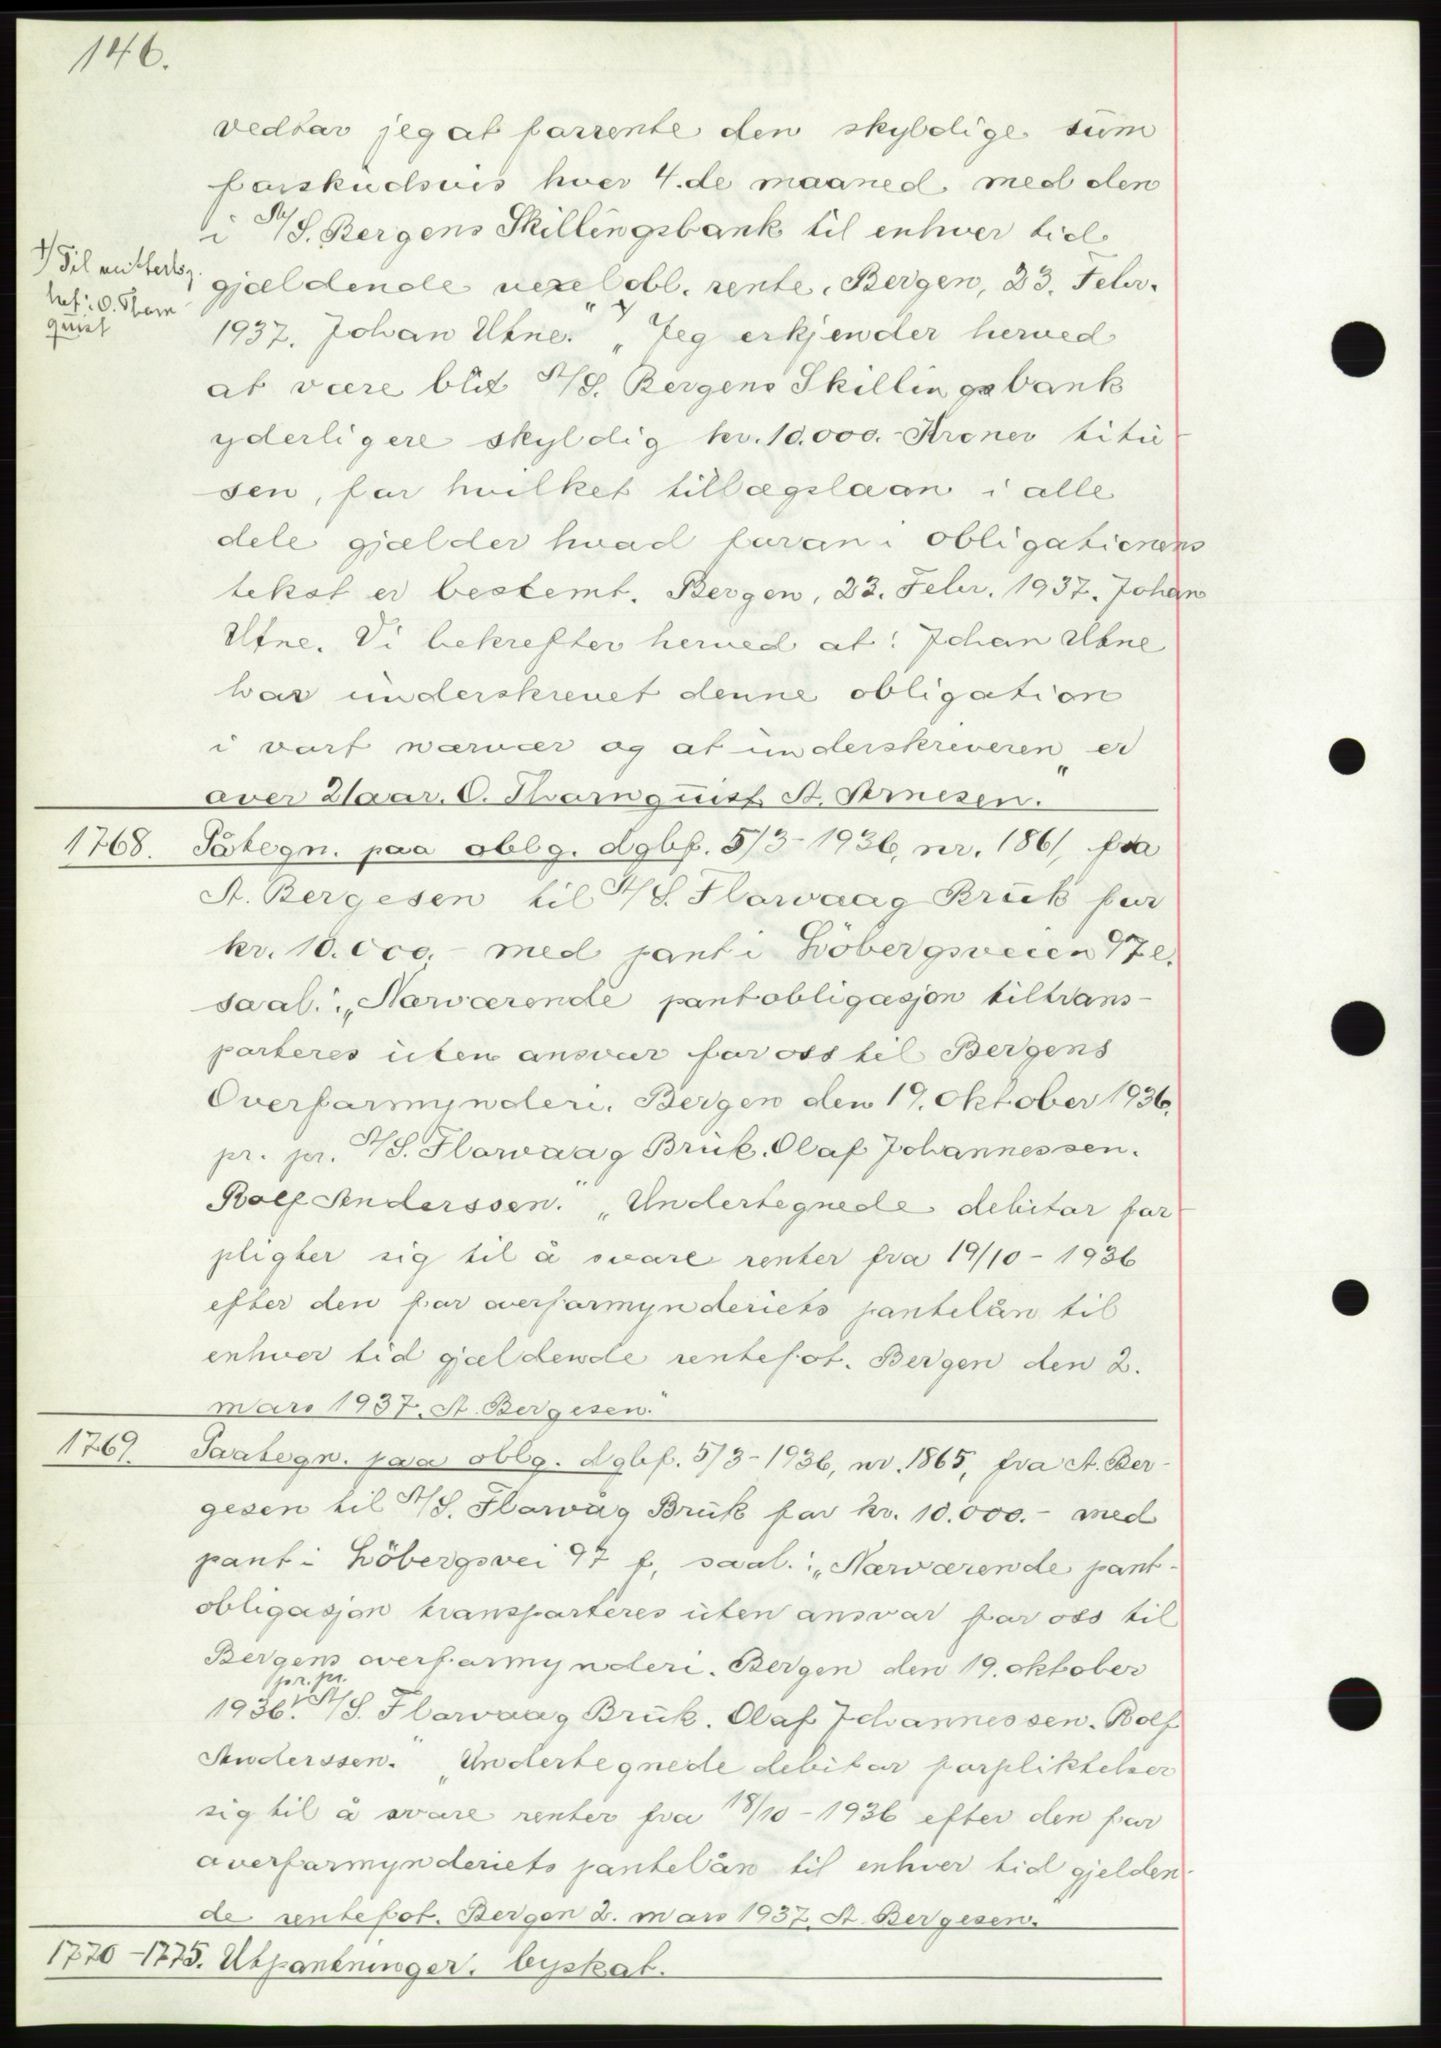 146.
vedtar jeg at forrente den skyldige sum
forskudsvis hver 4.de maaned med den
i A/S. Bergens Skillingsbank til enhver tid
gjældende vexelobl. rente. Bergen, 23. Febr.
+) Til vitterlig-
het: O. Thorn
quist
1937. Johan Utne." +) „Jeg erkjender herved
at være blit A/S. Bergens Skillingsbank
yderligere skyldig kr. 10.000.- Kroner titu-
sen, for hvilket tillægslaan i alle
dele gjælder hvad foran i obligationens
tekst er bestemt. Bergen, 23. Febr. 1937. Johan
Utne. Vi bekrefter herved at: Johan Utne
har underskrevet denne obligation
i vort nærvær og at underskriveren er
over 21 aar. O. Thornquist. A. Arnesen."
1768. Påtegn. paa oblg. dgbf. 5/3-1936, nr. 1861, fra
A. Bergesen til A/S. Florvaag Bruk for
kr. 10.000.- med pant i Löbergsveien 97 e.
saal.: „Nærværende pantobligasjon tiltrans-
porteres uten ansvar for oss til Bergens
Overformynderi. Bergen den 19. oktober 1936.
pr. pr. A/S. Florvaag Bruk. Olaf Johannessen.
Rolf Anderssen." „Undertegnede debitor for-
pligter sig til å svare renter fra 19/10 - 1936
efter den for overformynderiets pantelån til
enhver tid gjældende rentefot. Bergen den 2.
mars 1937. A. Bergesen."
1769. Paategn. paa oblg. dgbf. 5/3-1936, nr. 1865, fra A. Ber-
gesen til A/S. Florvåg Bruk for kr. 10.000.- med
pant i Löbergsvei 97 f, saal.: „Nærværende pant-
obligasjon transporteres uten ansvar for oss til
Bergens overformynderi. Bergen den 19. oktober
1936. pr. pr. A/S. Florvaag Bruk. Olaf Johannessen. Rolf
Anderssen." „Undertegnede debitor forpliktelser
sig til å svare renter fra 18/10 - 1936 efter den for
overformynderiets pantelån til enhver tid gjelden-
de rentefot. Bergen 2. mars 1937. A. Bergesen.
1770 - 1775. Utpantninger. byskat.